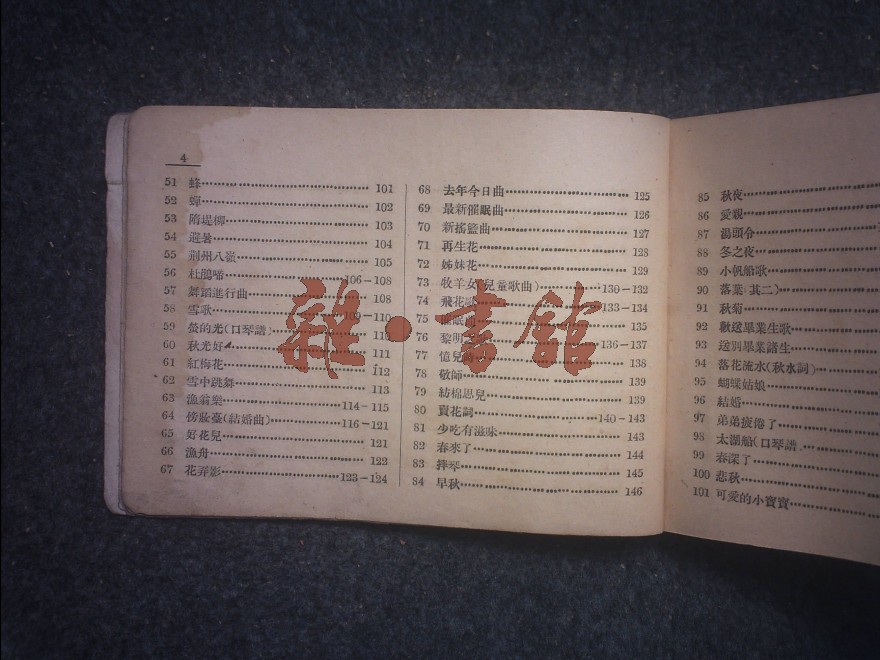 4
51 蜂 101
52 蟬 102
53 隋堤柳 103
54 避暑 104
55 荆州八嶺 105
56 杜鵑啼 106－108
57 舞蹈進行曲 108
58 雪歌 109－110
59 螢的光(口琴譜) 110
60 秋光好 111
61 紅梅花 112
62 雪中跳舞 113
63 漁翁樂 114－115
64 傍妝臺(結婚曲) 116－121
65 好花兒 121
66 漁舟 122
67 花弄影 123－124
68 去年今日曲 125
69 最新催眠曲 126
70 新搖籃曲 127
71 再生花 128
72 姊妹花 129
73 牧羊女(兒童歌曲) 130－132
74 飛花歌 133－134
75 135
76 黎明 136－137
77 憶兒 138
78 敬師 139
79 紡棉思兒 139
80 賣花詞 140－143
81 少吃有滋味 143
82 春來了 144
83 拌琴 145
84 早秋 146
85 秋夜
86 愛親
87 湯頭令
88 冬之夜
89 小帆船歌
90 落葉(其二)
91 秋菊
92 歡送畢業生歌
93 送別畢業諸生
94 落花流水(秋水詞)
95 蝴蝶姑娘
96 結婚
97 弟弟疲倦了
98 太湖船(口琴譜
99 春深了
100 悲秋
101 可愛的小寶寶
雜·書舘